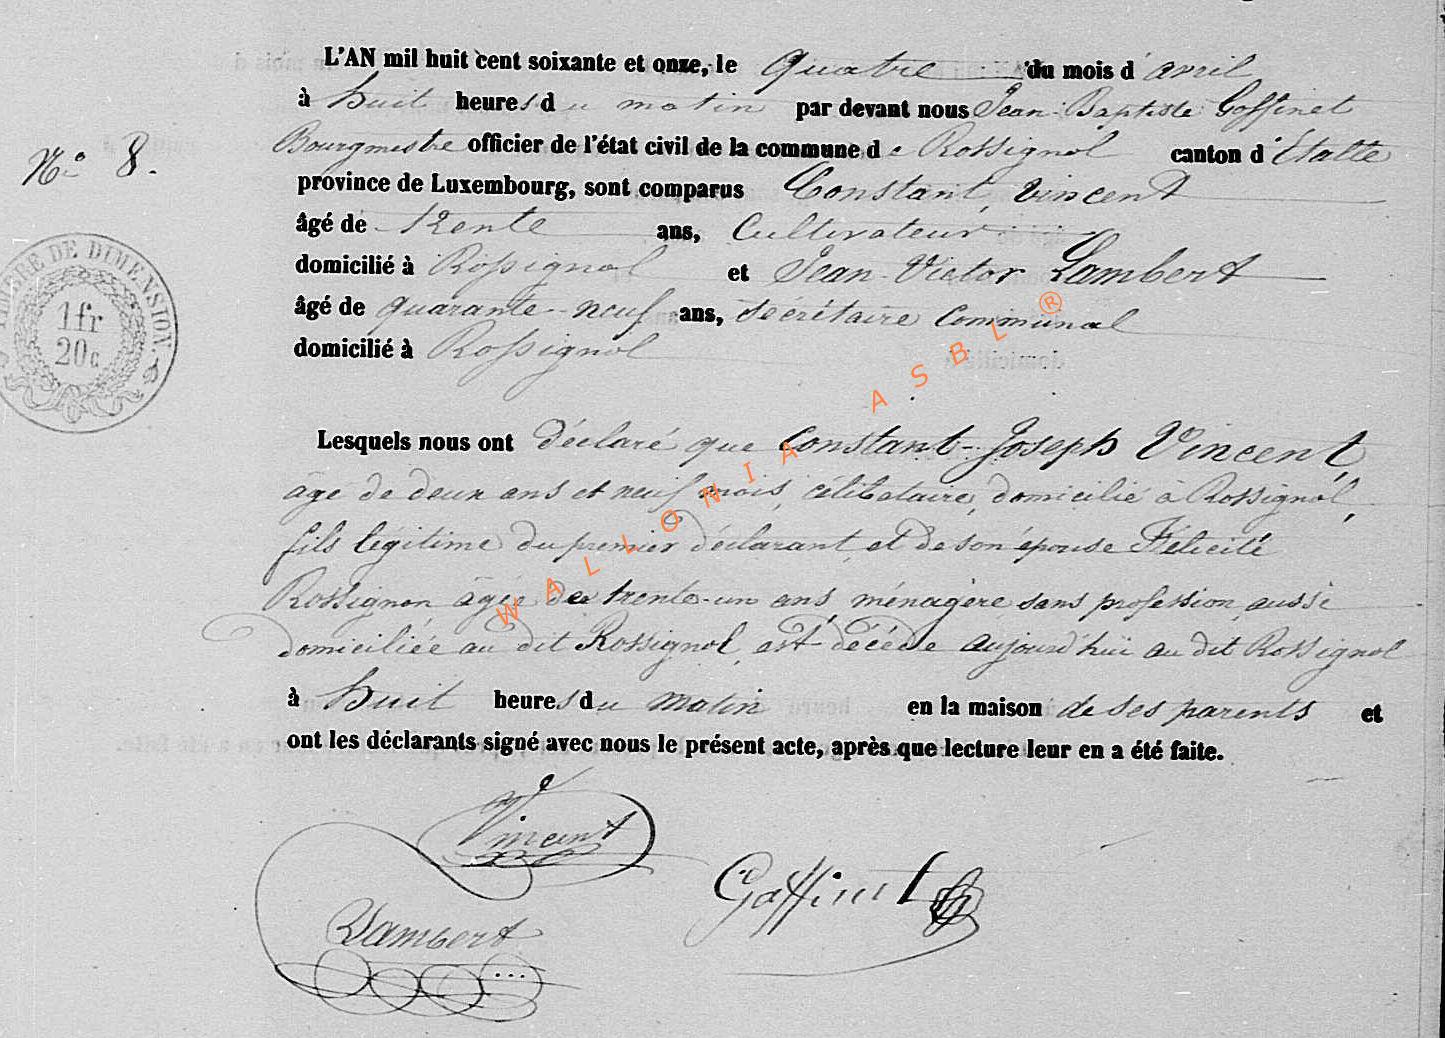 L'AN mil huit cent soixante et onze, le quatre du mois d'avril
à huit heures du matin par devant nous Jean-Baptiste Goffinet
Bourgmestre officier de l'état civil de la commune de Rossignol canton d'Etalle
N° 8.
province de Luxembourg, sont comparus Constant, Vincent
âgé de trente ans, Cultivateur
domicilié à Rossignol et Jean-Victor Lambert
âgé de quarante-neuf ans, secrétaire Communal
domicilié à Rossignol
TIMBRE DE DIMENSION
1 fr
20 c
Lesquels nous ont déclaré que Constant-Joseph Vincent,
âgé de deux ans et neuf mois, célibataire, domicilié à Rossignol,
fils légitime du premier déclarant et de son épouse Félicité
Rossignon âgée de trente-un ans, ménagère sans profession aussi
domiciliée au dit Rossignol, est décédé aujourd'hui au dit Rossignol
à huit heures du matin en la maison de ses parents et
ont les déclarants signé avec nous le présent acte, après que lecture leur en a été faite.
Vincent
Goffinet
Lambert
WALLONIA ASBL ®